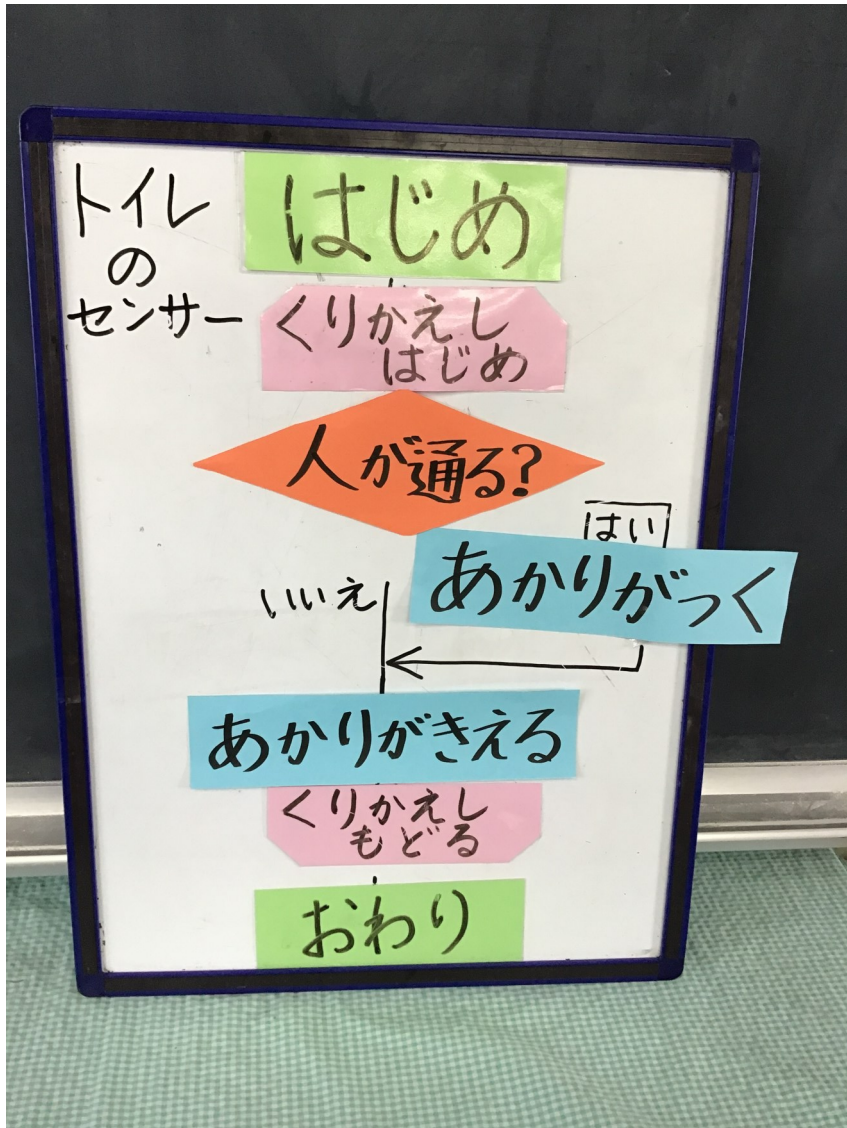 トイレ
の
センサー
はじめ
くりかえし
はじめ
人が通る?
はい
あかりがつく
いいえ
あかりがきえる
くりかえし
もどる
おわり